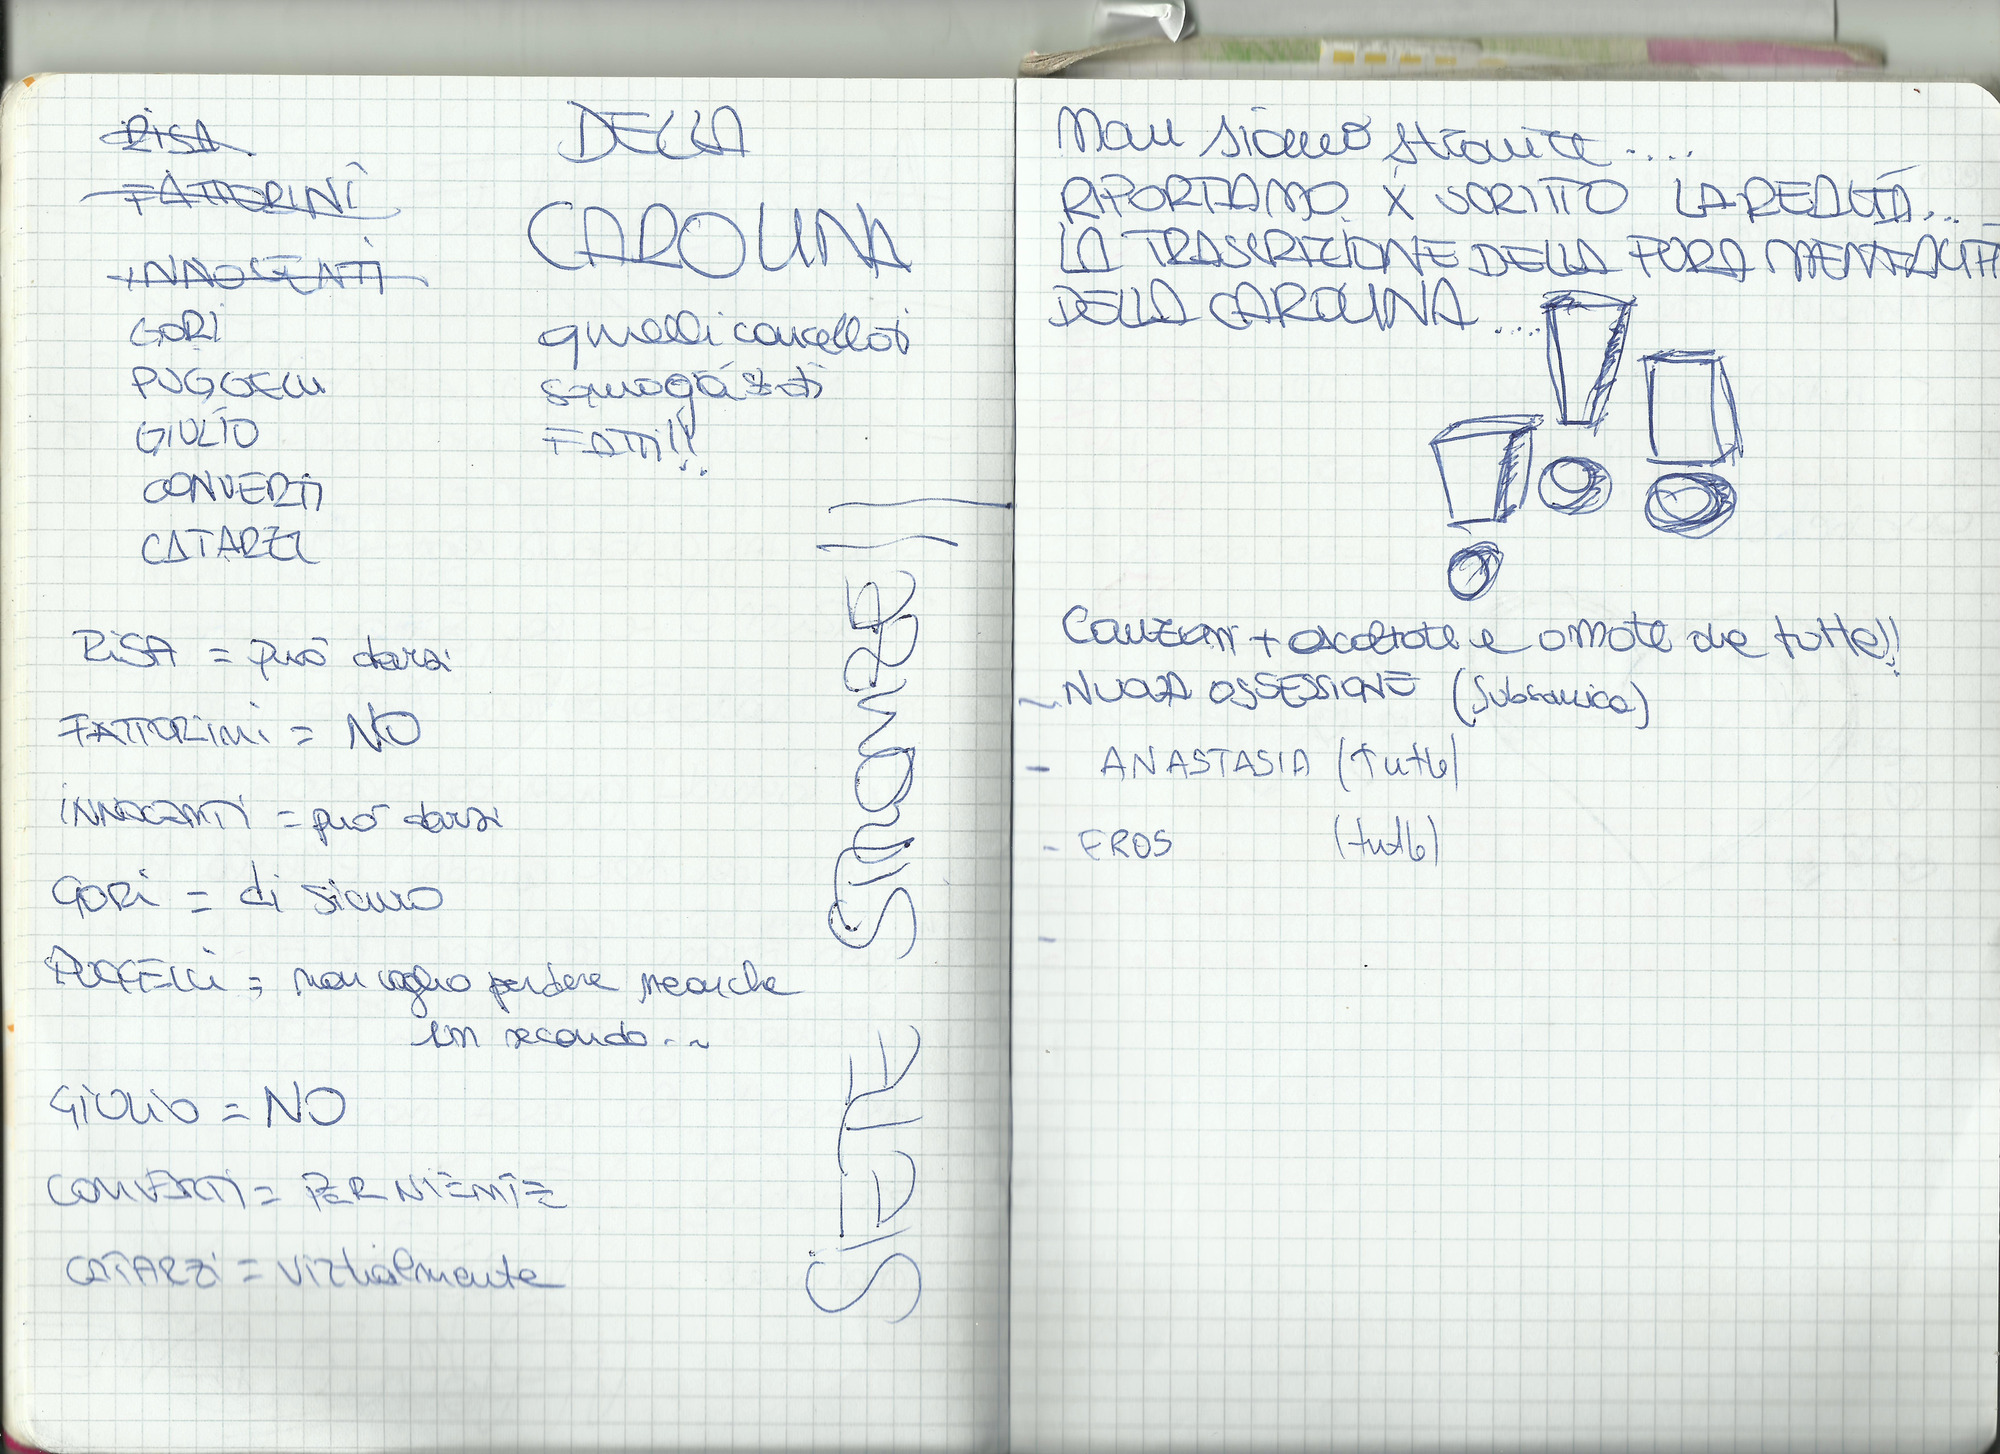 RISA
FATTORINI
INNOCENTI
GORI
PUGGELLI
GIULIO
CONVERTI
CATARZI
DELLA
CAROLINA
quelli cancellati
sono già stati
FATTI!!
RISA = può darsi
FATTORINI = NO
INNOCENTI = può darsi
GORI = di sicuro
PUGGELLI = non voglio perdere neanche
un secondo...
GIULIO = NO
CONVERTI = PER NIENTE
CATARZI = virtualmente
SIETE STRONZE!!
Non siamo stronze....
RIPORTIAMO X SCRITTO LA REALTÀ...
LA TRASCRIZIONE DELLA PURA MENTALITÀ
DELLA CAROLINA ....
!!!
Canzoni + ascoltate e amate da tutte!!
~ NUOVA OSSESSIONE (Subsonica)
- ANASTASIA (tutte)
- EROS (tutte)
-